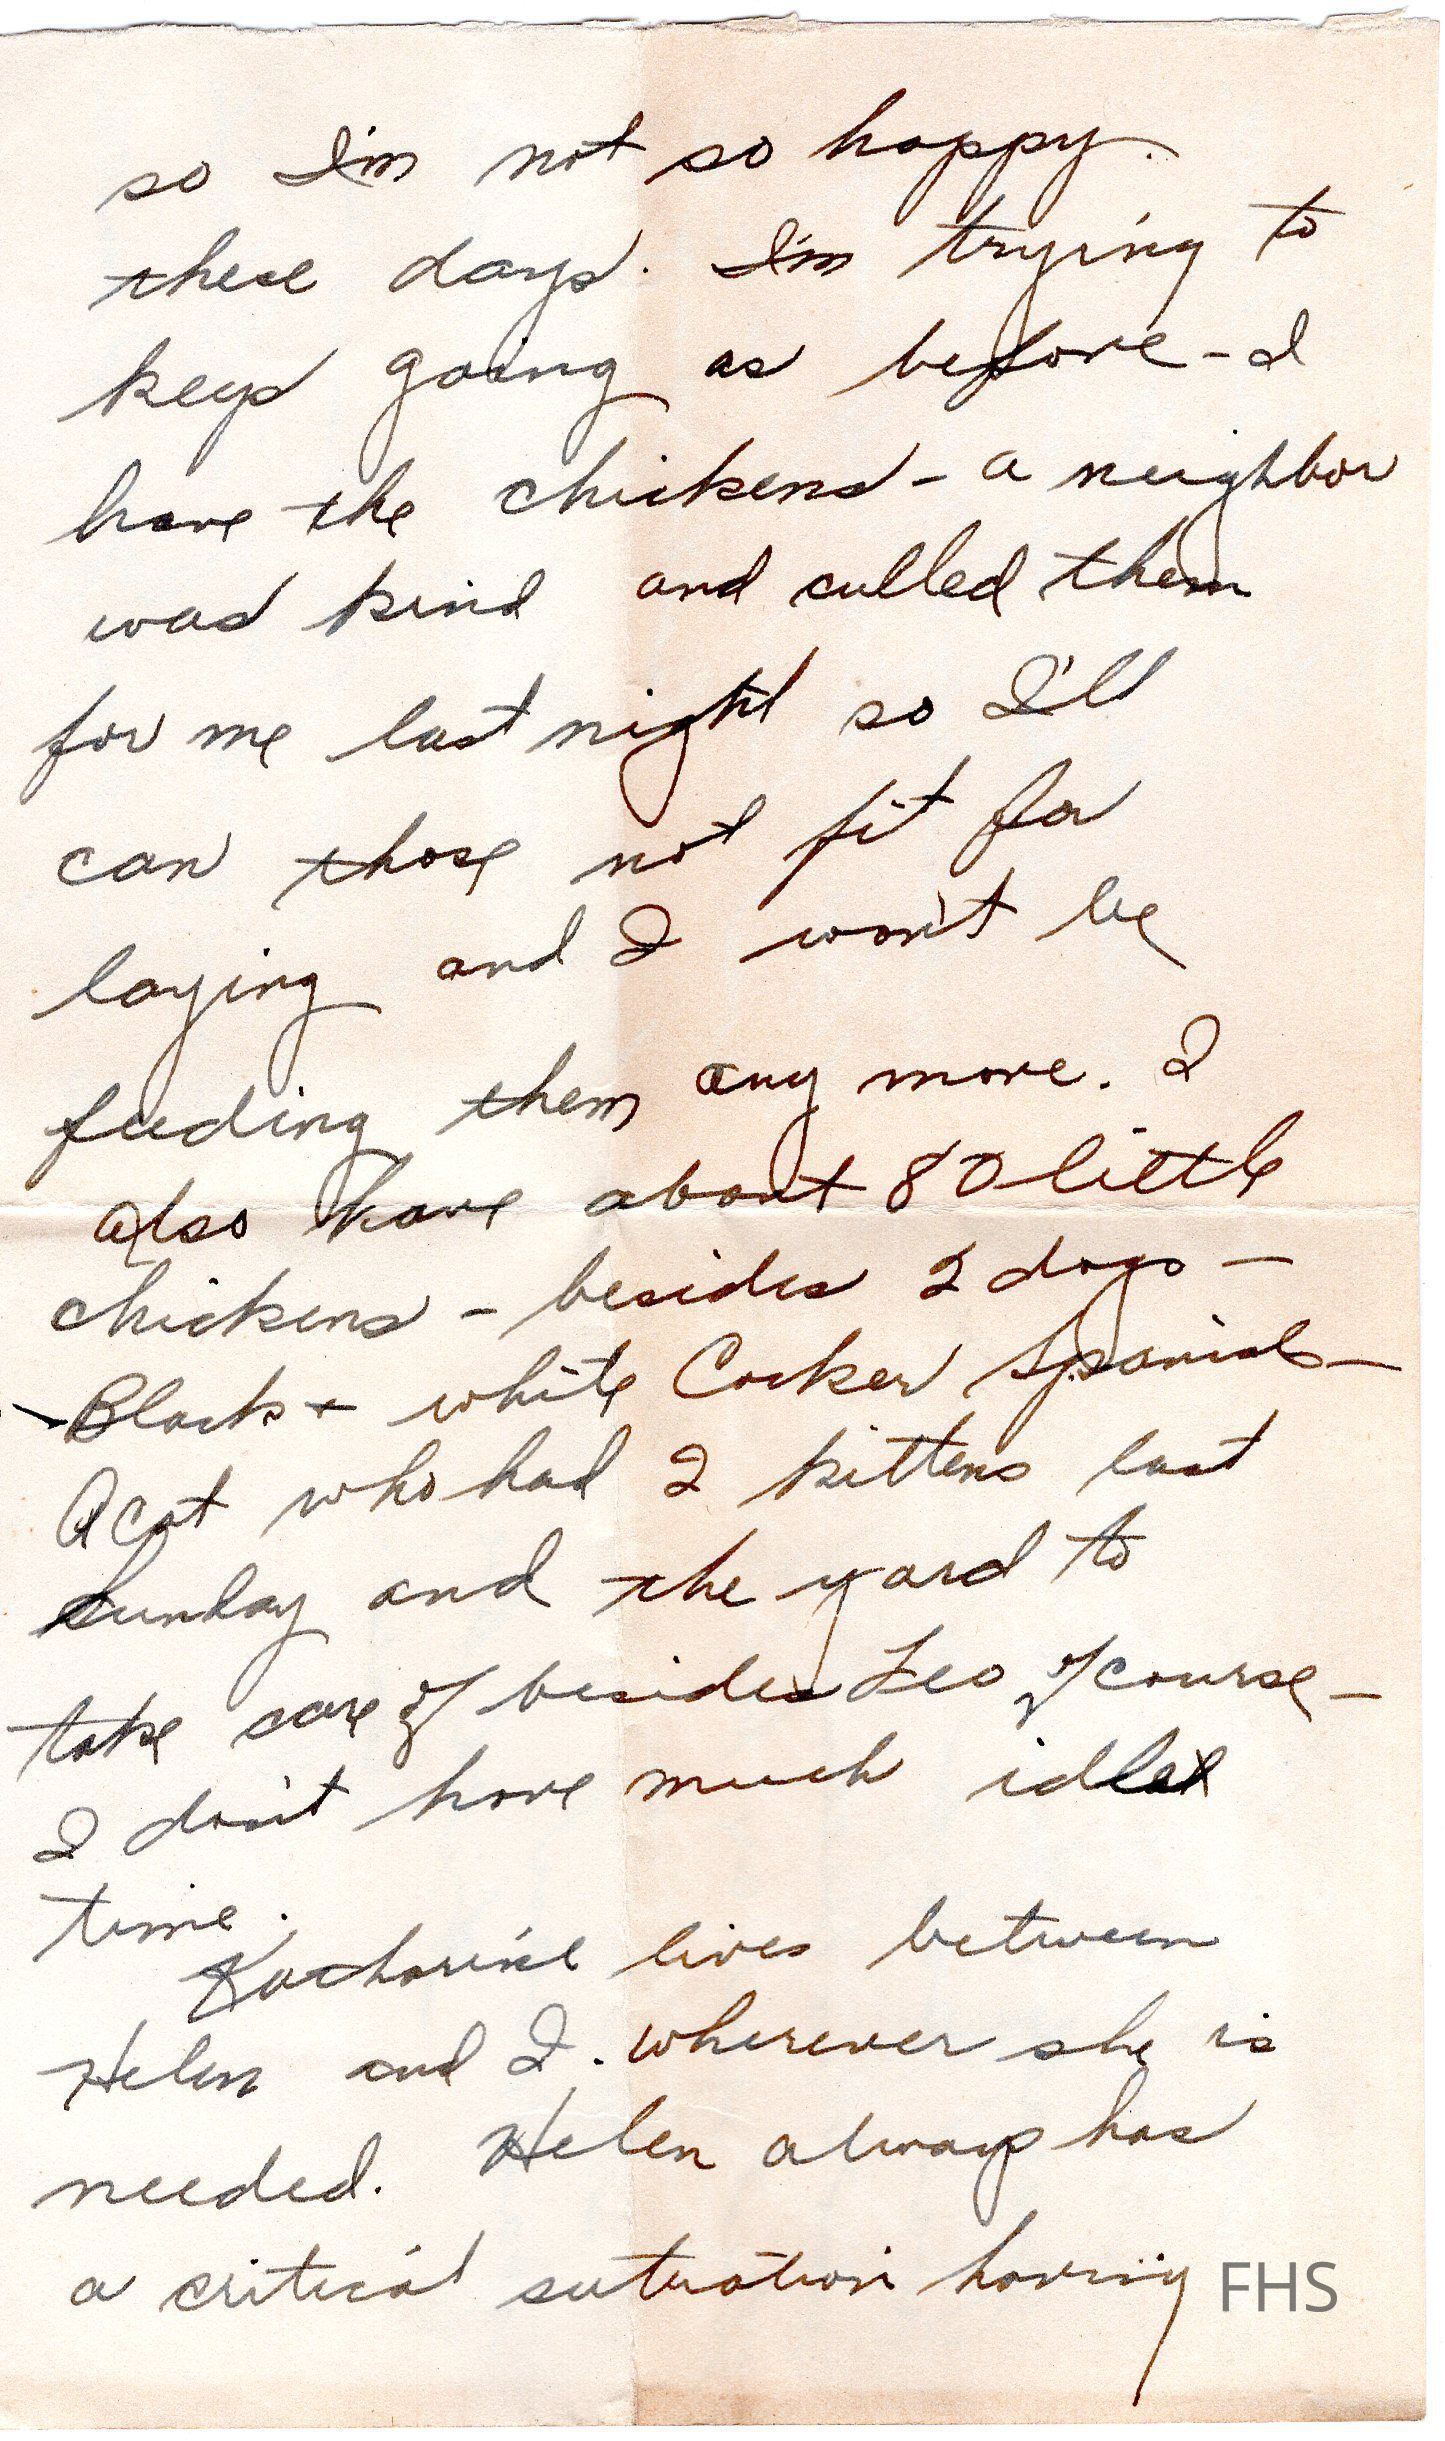 so I'm not so happy.
these days. I'm trying to
keep going as before - I
have the chickens - a neighbor
was kind and culled them
for me last night so I'll
can those not fit for
laying and I won't be
feeding them any more. I
also have about 80 little
chickens - besides 2 dogs -
Black + white Cocker Spanials -
A cat who had 2 kittens last
Sunday and the yard to
take care of besides Leo of course -
I don't have much idle
time.
Katharine lives between
Helen and I. wherever she is
needed. Helen always has
a critical situation having
FHS